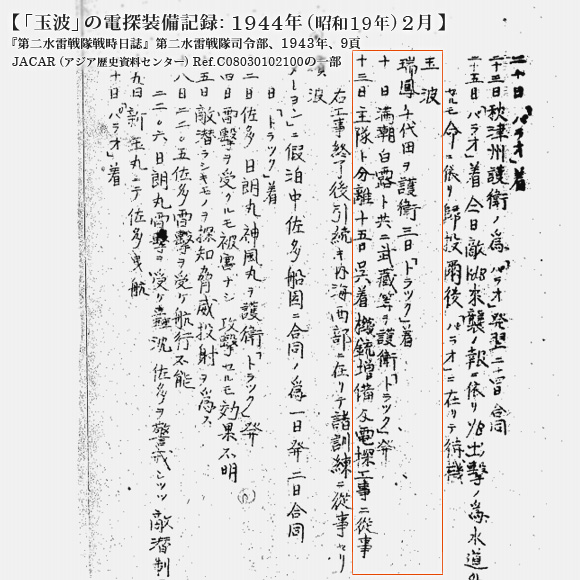 【「玉波」の電探装備記録: 1944年（昭和19年）2月】
『第二水雷戦隊戦時日誌』第二水雷戦隊司令部、1943年、9頁
JACAR（アジア歴史資料センター）Ref.C08030102100の一部
二十日「パラオ」着
二十三日秋津州護衛ノ為「パラオ」発翌二十四日合同
二十五日「パラオ」着 今日敵 来襲ノ報ニ依リ 出撃ノ為水道
セルモ令ニ依リ歸投爾後「パラオ」ニ在リテ待機
玉波
瑞鳳、千代田ヲ護衛三日「トラツク」着
十日満潮白露ト共ニ武蔵等ヲ護衛「トラツク」発
十三日主隊ト分離十五日呉着機銃増備及電探工事ニ従事
右工事終了後引続キ内海西部ニ在リテ諸訓練ニ従事セリ
波
メーヨン」ニ假泊中佐多船団ニ合同ノ為一日発二日合同
日「トラツク」着
二日佐多日朗丸神風丸ヲ護衛「トラツク」発
四日雷撃ヲ受クルモ被害ナシ攻撃セルモ効果不明
五日敵潜ラシキモノヲ探知脅威投射ヲ為ス
八日二二〇五佐多雷撃ヲ受ケ航行不能
二二〇六日朗丸雷撃ヲ受ケ轟沈佐多ヲ警戒シツツ敵潜制
九日新玉丸ニテ佐多曳航
十日「パラオ」着